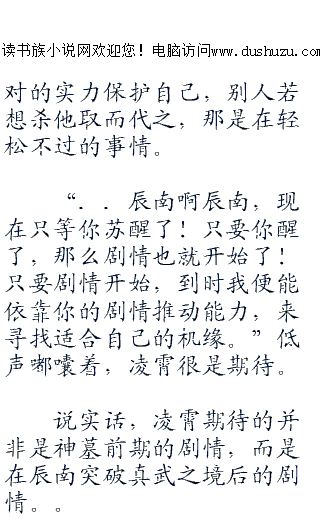 读书族小说网欢迎您！电脑访问www.dushuzu.com
对的实力保护自己，别人若
想杀他取而代之，那是在轻
松不过的事情。
“．．辰南啊辰南，现
在只等你苏醒了！只要你醒
了，那么剧情也就开始了！
只要剧情开始，到时我便能
依靠你的剧情推动能力，来
寻找适合自己的机缘。”低
声嘟囔着，凌霄很是期待。
说实话，凌霄期待的并
非是神墓前期的剧情，而是
在辰南突破真武之境后的剧
情。。